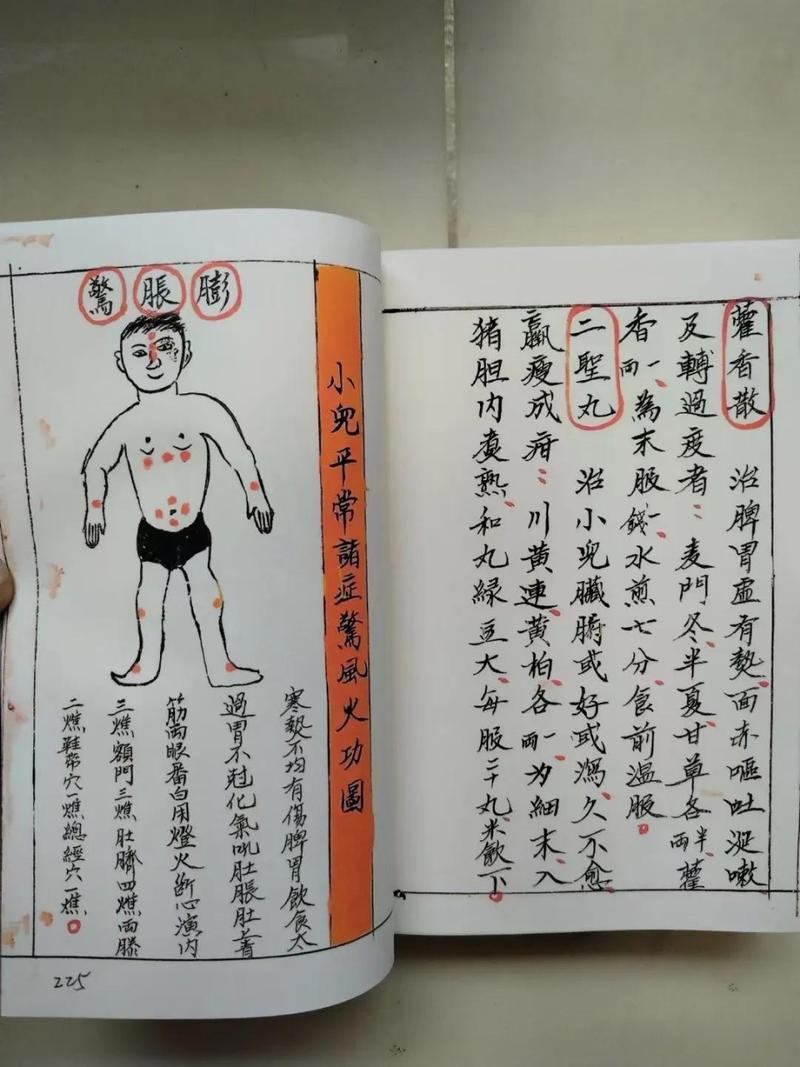 藿香散 治脾胃虛有熱面赤嘔吐涎嗽
及轉過疫者：麦門冬半夏甘草各半兩藿
香一兩為末服一錢水煎七分食前溫服
二聖丸 治小兒臟腑或好或瀉久不愈
羸瘦成疳：川黃連黃柏各一兩为細末入
猪胆内煮熟和丸綠豆大每服二十丸米飲下
小兒平常諸症驚風火功圖
膨脹驚
寒熱不均有傷脾胃飲食太
過胃不尅化氣吼肚脹肚上青
筋兩眼番白用燈火斷心演内
三燋額門三燋肚臍四燋兩膝
二燋鞋帶穴一燋總經穴一燋
225